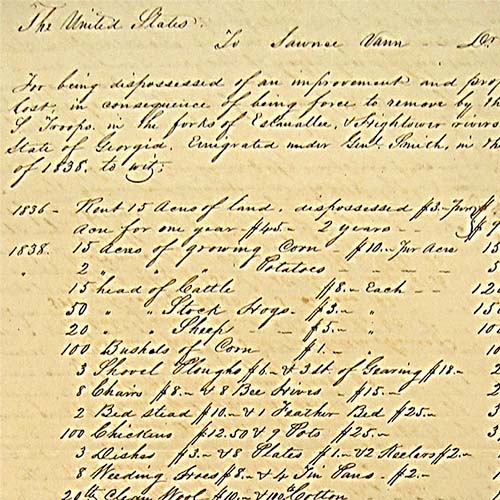 The United States
To Sawnee Vann Dr
For being dispossessed of an improvement and prop
lost, in consequence of being force to remove by th
S Troops. in the forks of Estanallee, & Hightower rivers
State of Georgia. Emigrated under Genl. Smith, in th
of 1838. to wit;
1836 - Rent 15 Acres of land, dispossessed $3.- Pur
Acre for one year $45.- 2 years
1838. 15 acres of growing Corn $10.- Pur Acre 15
" 2 " " " Potatoes
15 head of Cattle $8.- Each 120
50 " " Stock Hogs. $3.- " 15
20 " " Sheep $5.- " 10
100 Bushels of Corn $1.- 10
3 Shovel Ploughs $6.- & 3 st. of Gearing $18.- 2
8 Chairs $8.- & 8 Bee Hives - $15.- 2
2 Bed stead $10.- & 1 Feather Bed $25.- 3
100 Chickens $12.50 & 9 Pots $25.- 3
3 Dishes $3.- & 8 Plates $1.- & 2 Keelers $2.-
8 Weeding Hoes $8.- & 4 Tin Pans. $2.-
20 lb Clean Wool $10.- & 100 lb Cotton